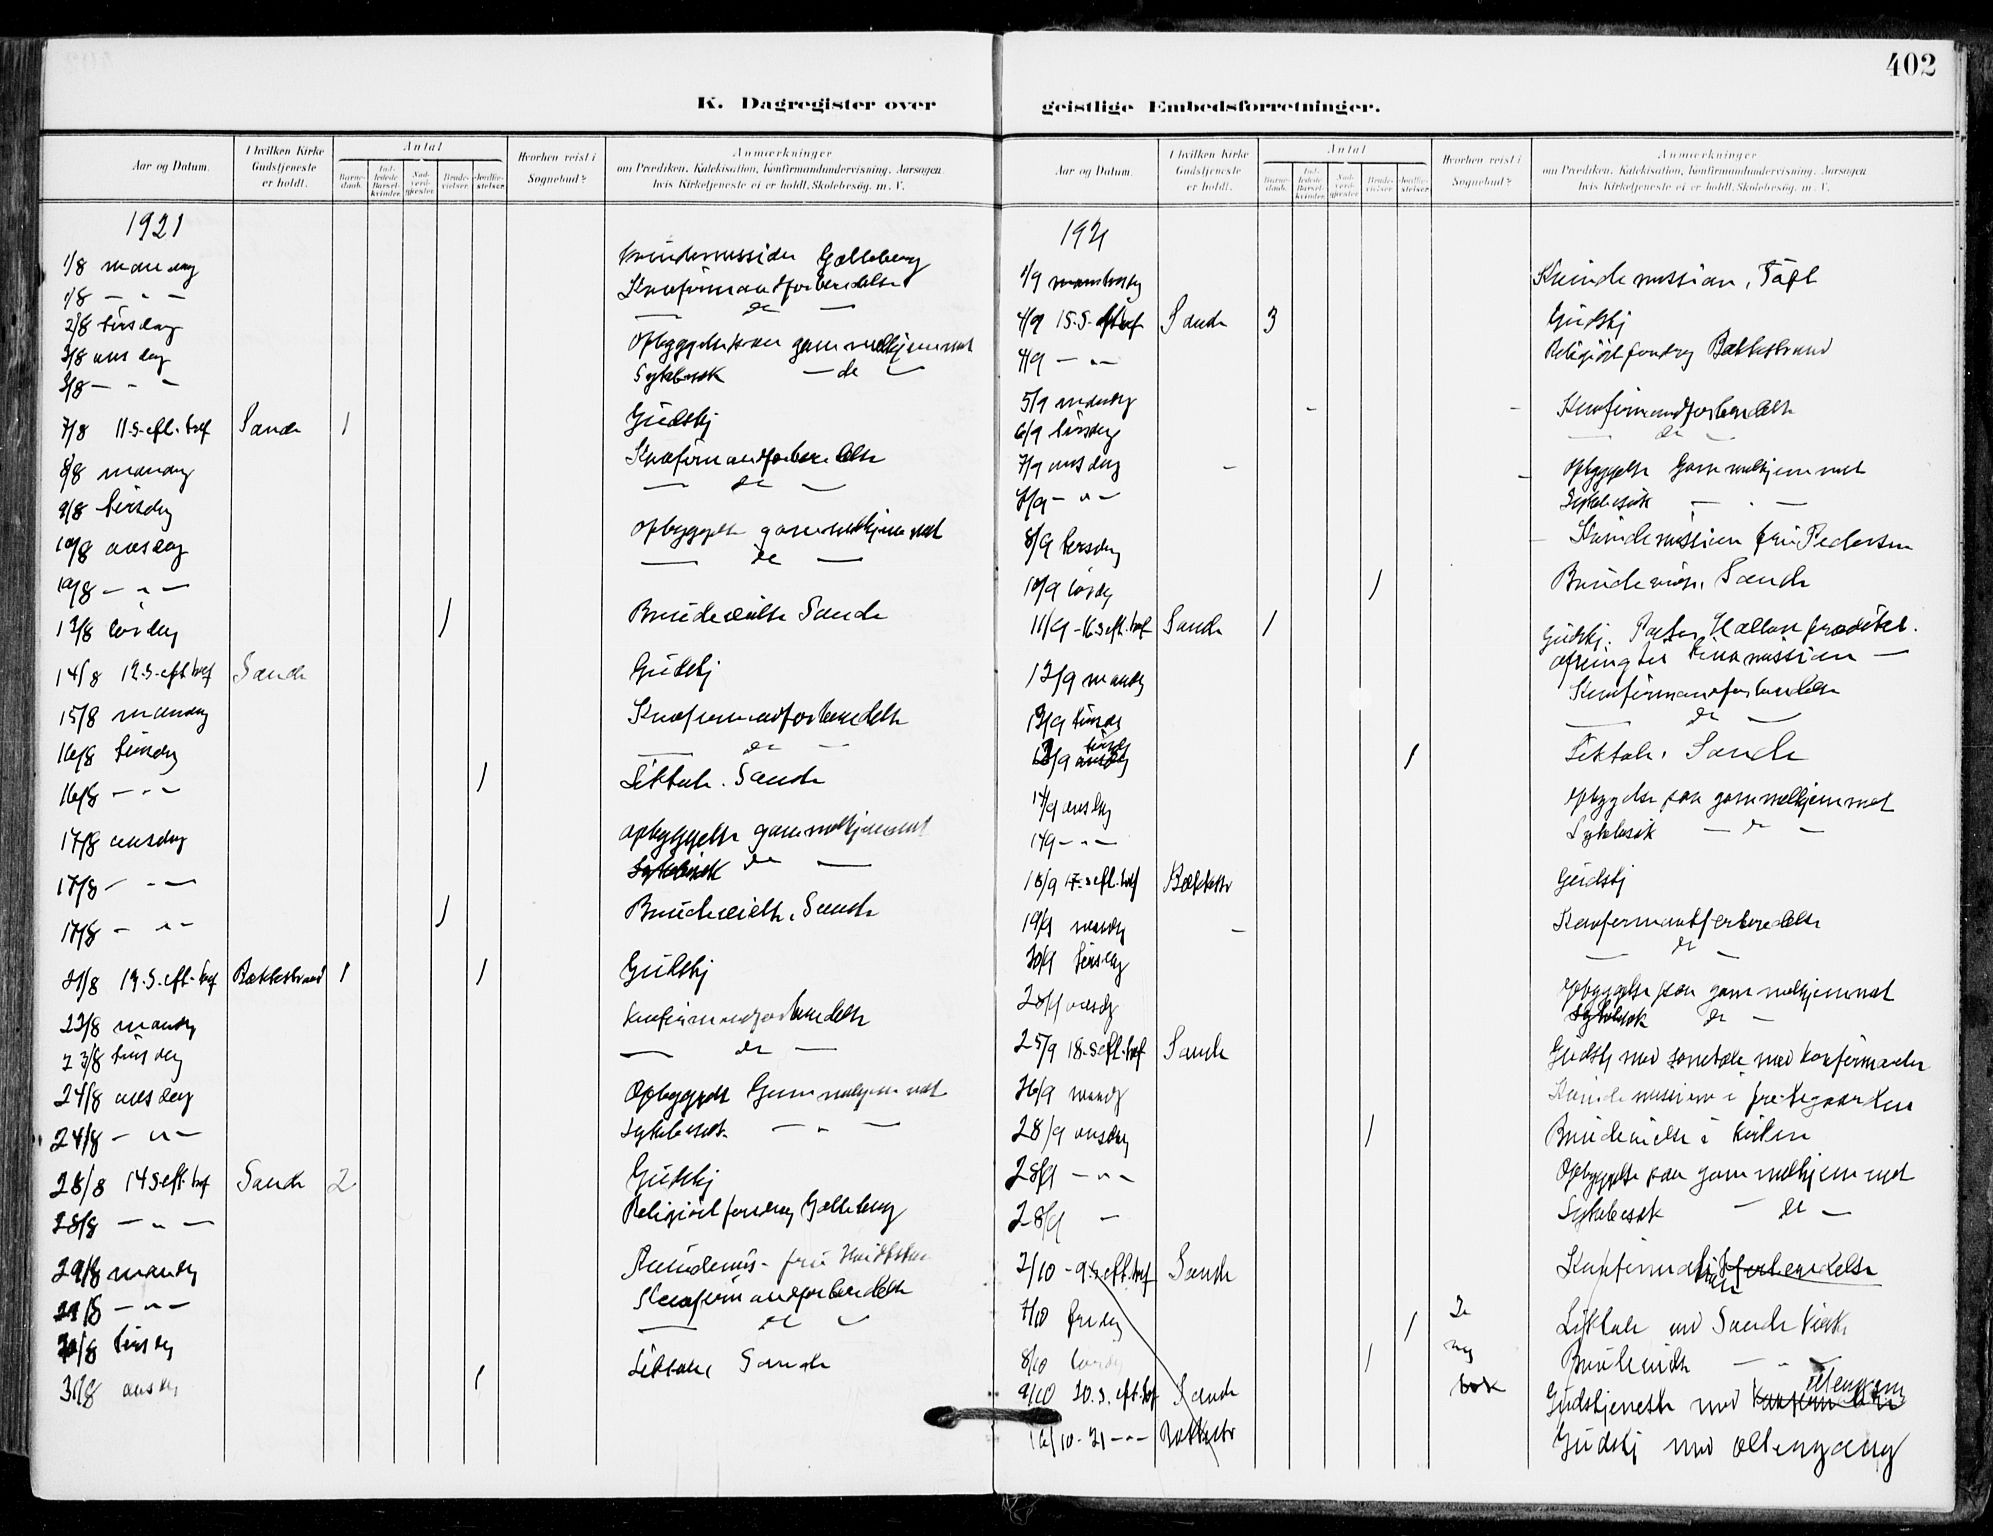 402
K. Dagregister over geistlige Embedsforretninger.
Aar og Datum.
I hvilken Kirke Gudstjeneste er holdt.
Antal
Barne-daab.
Ind-ledede Barsel-kvinder.
Nad-verd-gjester.
Brude-vielser.
Jordfæ-stelser.
Hvorhen reist i Sognebud?
Anmærkninger
om Prædiken, Katekisation, Konfirmandundervisning, Aarsagen
hvis Kirketjeneste ei er holdt, Skolebesøg, m. V.
1921
1/8 mandag Kvindemission Galleberg
1/8 — " — Konfirmandforberedelse
2/8 tirsdag — do —
3/8 onsdag Opbyggelse paa gammelhjemmet
3/8 — " — Sykebesøk — do —
7/8 11.s.eft.tref Sande 1 Gudstj
8/8 mandag Konfirmandforberedelse
9/8 tirsdag — do —
10/8 onsdag Opbyggelse gammelhjemmet
10/8 — " — — do —
13/8 lørdag 1 Brudevielse Sande
14/8 12.s.eft.tref Sande Gudstj
15/8 mandag Konfirmandforberedelse
16/8 tirsdag — do —
16/8 — " — 1 Liktale. Sande
17/8 onsdag Opbyggelse gammelhjemmet
17/8 — " — Sykebesøk do —
17/8 — " — 1 Brudevielse. Sande
21/8 13.s.eft.tref Bækkestrand 1 1 Gudstj
22/8 mandag Konfirmandforberedelse
23/8 tirsdag — do —
24/8 onsdag Opbyggelse Gammelhjemmet
24/8 — " — Sykebesøk — " —
28/8 14 s eft. tref Sande 2 Gudstj
28/8 — " — Religiøst foredrag Galleberg
29/8 mandag Kvindemis- fru
29/8 — " — Konfirmandforberedelse
30/8 tirsdag — do —
31/8 onsdag 1 Liktale Sande
Aar og Datum.
I hvilken Kirke Gudstjeneste er holdt.
Antal
Barne-daab.
Ind-ledede Barsel-kvinder.
Nad-verd-gjester.
Brude-vielser.
Jordfæ-stelser.
Hvorhen reist i Sognebud?
Anmærkninger
om Prædiken, Katekisation, Konfirmandundervisning, Aarsagen
hvis Kirketjeneste ei er holdt, Skolebesøg, m. V.
1921
1/9 Kvindemission,
4/9 15.s.eft.tref Sande 3 Gudstj
4/9 — " — Religiøst foredrag Bækkestrand
5/9 mandag Konfirmandforberedelse
6/9 tirsdag — do —
7/9 onsdag Opbyggelse Gammelhjemmet
7/9 — " — Sykebesøk — " —
8/9 torsdag Kvindemission fru Pedersen
10/9 lørdag 1 Brudevielse. Sande
11/9 - 16.s.eft.tref Sande 1 Gudstj. Pastor
Kinamission —
12/9 mandag Konfirmandforberedelse
13/9 tirsdag — do —
13/9 tirsdag 1 Liktale. Sande
14/9 onsdag Opbyggelse paa gammelhjemmet
14/9 — " — Sykebesøk — do —
18/9 17.s.eft.tref Bækkestr Gudstj
19/9 mandag Konfirmandforberedelse
20/9 tirsdag — do —
28/9 onsdag Opbyggelse paa gammelhjemmet
Sykebesøk do —
25/9 18.s.eft.tref Sande Gudstj med samtale med konfirmander
26/9 mandag Kvindemission i prestegaarden
28/9 onsdag 1 Brudevielse i kirken
28/9 — " — Opbyggelse paa gammelhjemmet
28/9 — Sykebesøk — do —
2/10 - 9.s.eft.tref Sande
7/10 fredag 1 Liktale ved Sande kirke
8/10 lørdag 1 Brudevielse — " —
Se ny bok
9/10 20.s.eft.tref Sande Gudstjeneste med altergang
16/10-21 — " — Bækkestr Gudstj med altergang